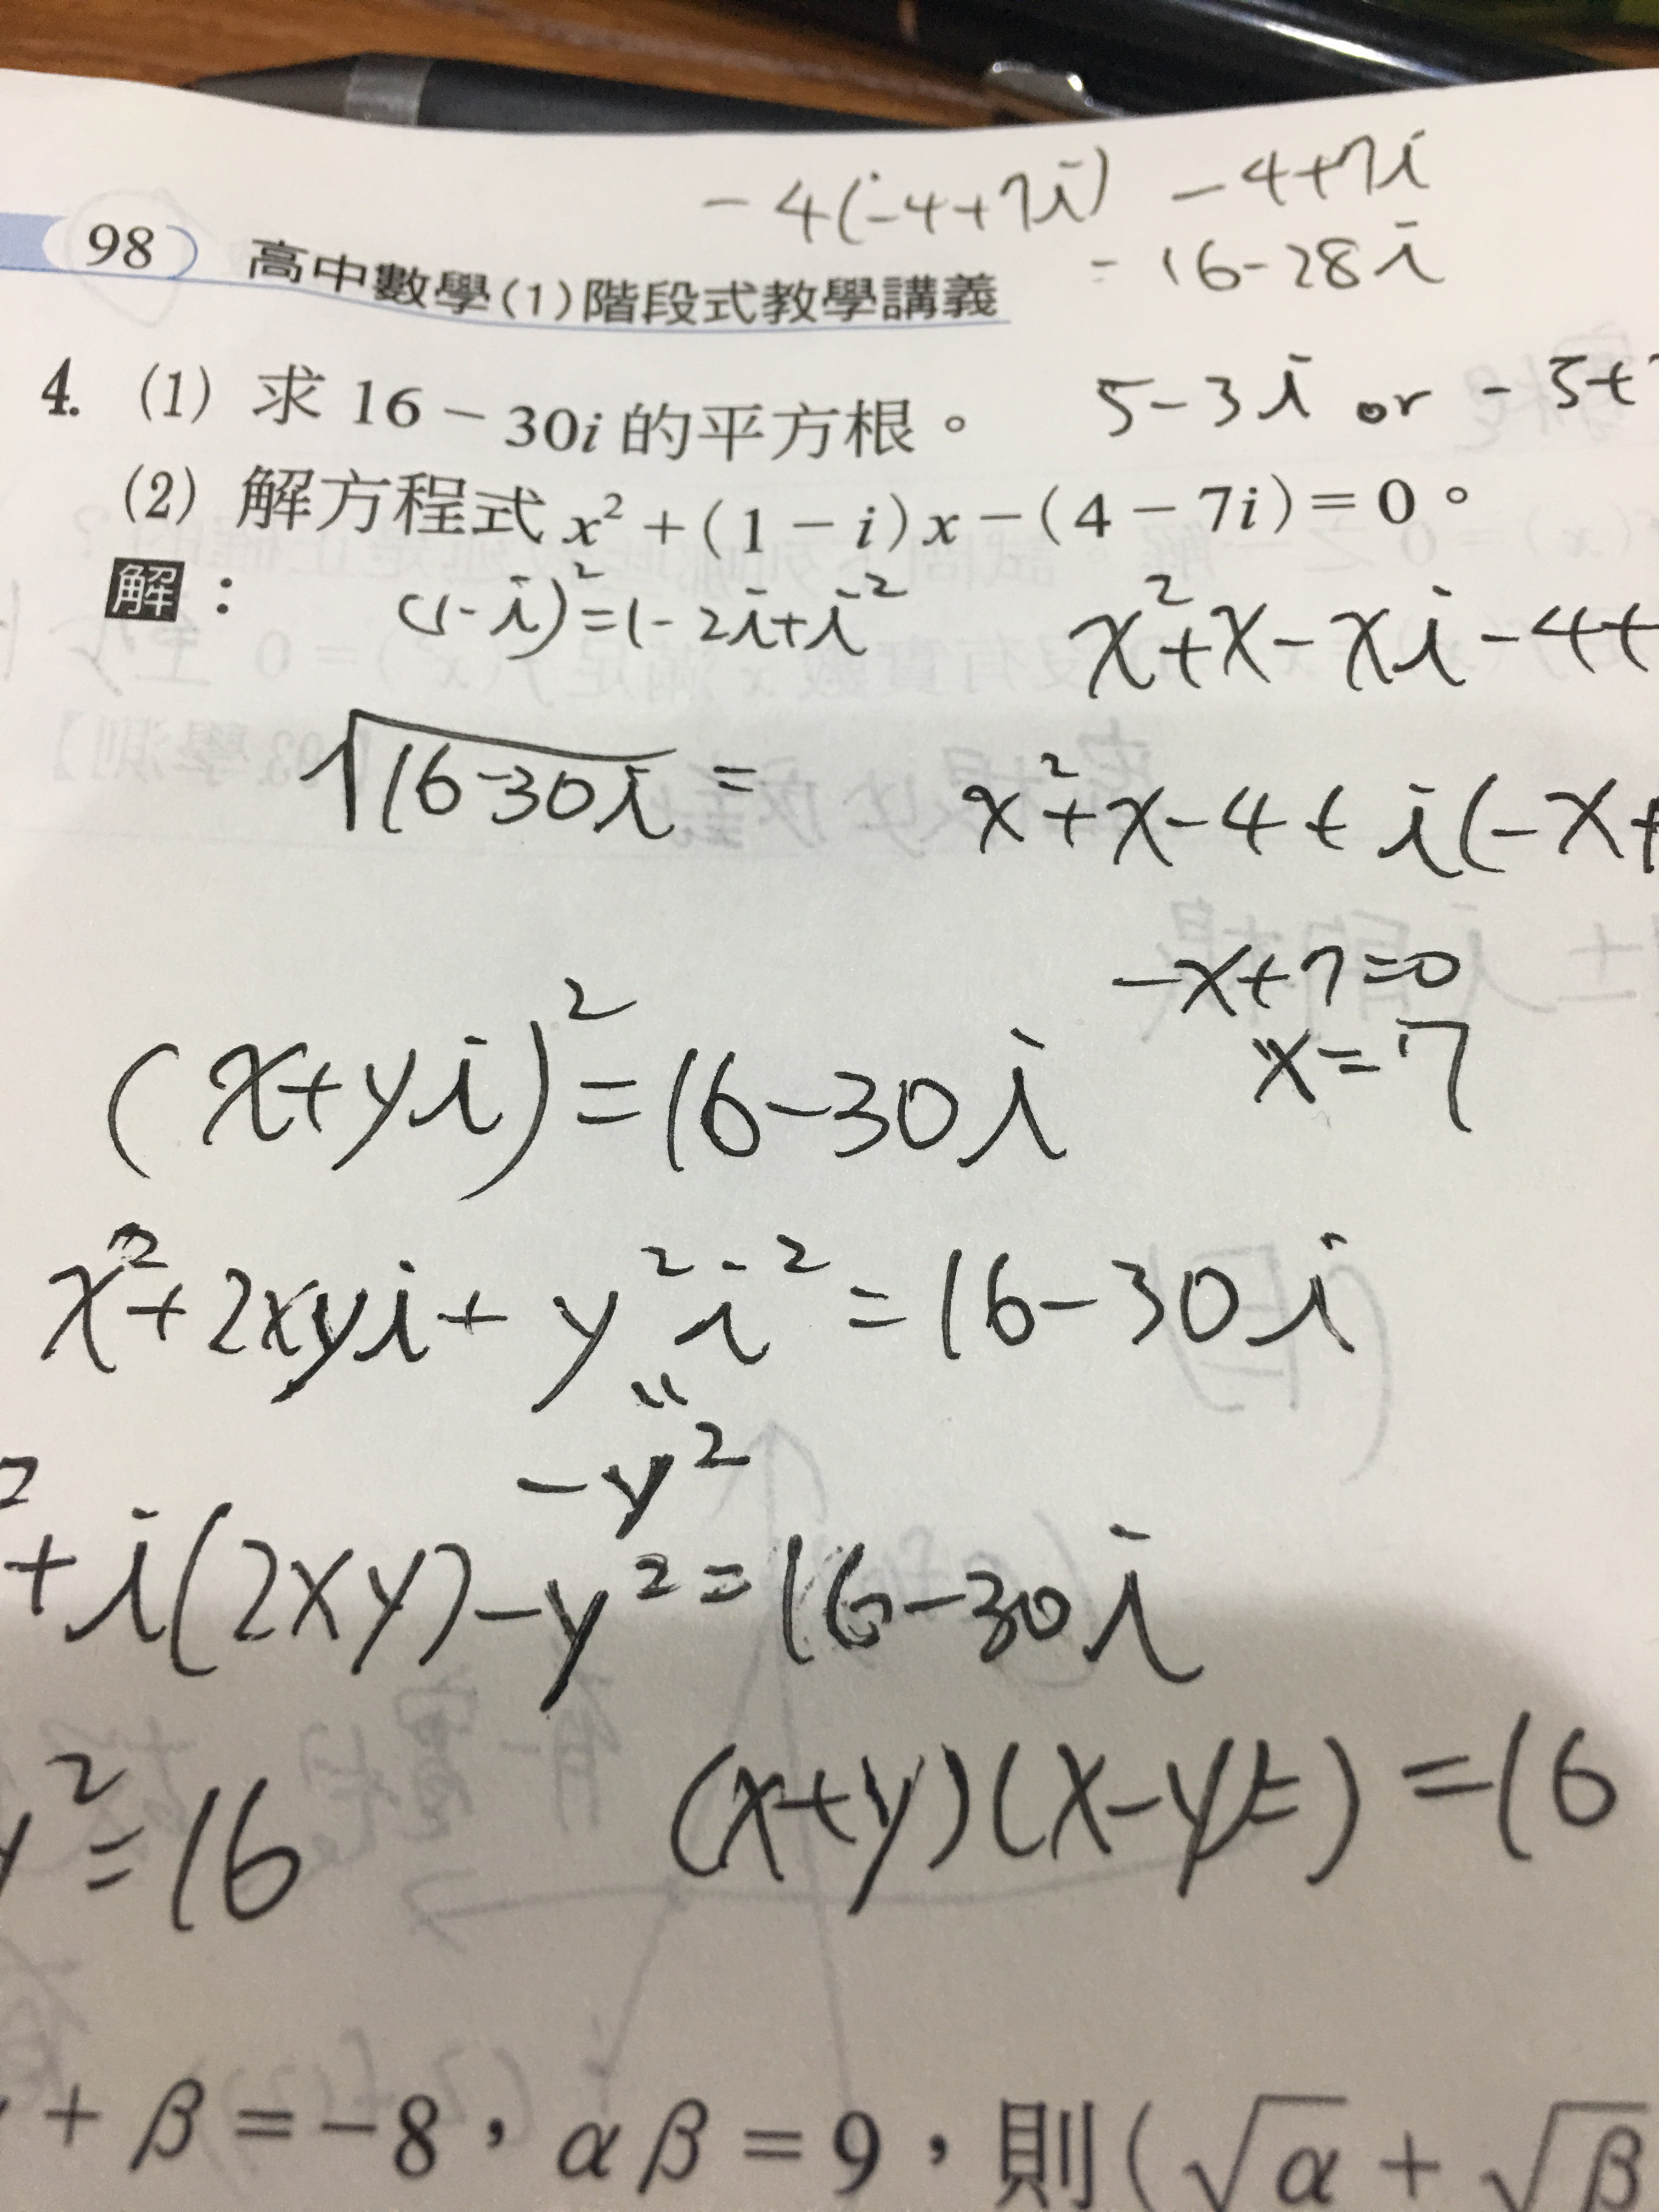 -4(-4+7i) -4+7i
= 16-28i
98 高中數學(1)階段式教學講義
4. (1) 求 16-30i 的平方根。 5-3i or -5+
(2) 解方程式 x²+(1-i)x-(4-7i)=0。
解:
(1-i)²=1-2i+i² x²+x-xi-4+
√16-30i = x²+x-4+i(-x+
-x+7=0
x=7
(x+yi)²=16-30i
x²+2xyi+y²i²=16-30i
"
-y²
²+i(2xy)-y²=16-30i
y²=16 (x+y)(x-y)=16
+β=-8,αβ=9,則(√α+√β